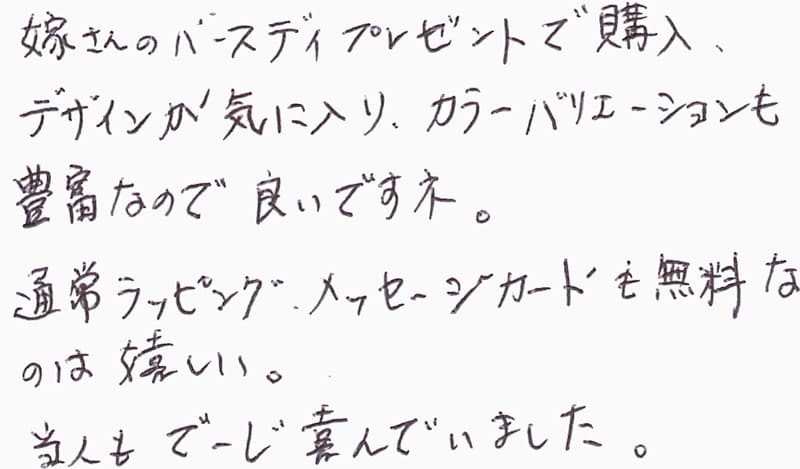 嫁さんのバースディプレゼントで購入、
デザインが気に入り、カラーバリエーションも
豊富なので良いですネ。
通常ラッピング、メッセージカードも無料な
のは嬉しい。
当人もでーじ喜んでいました。